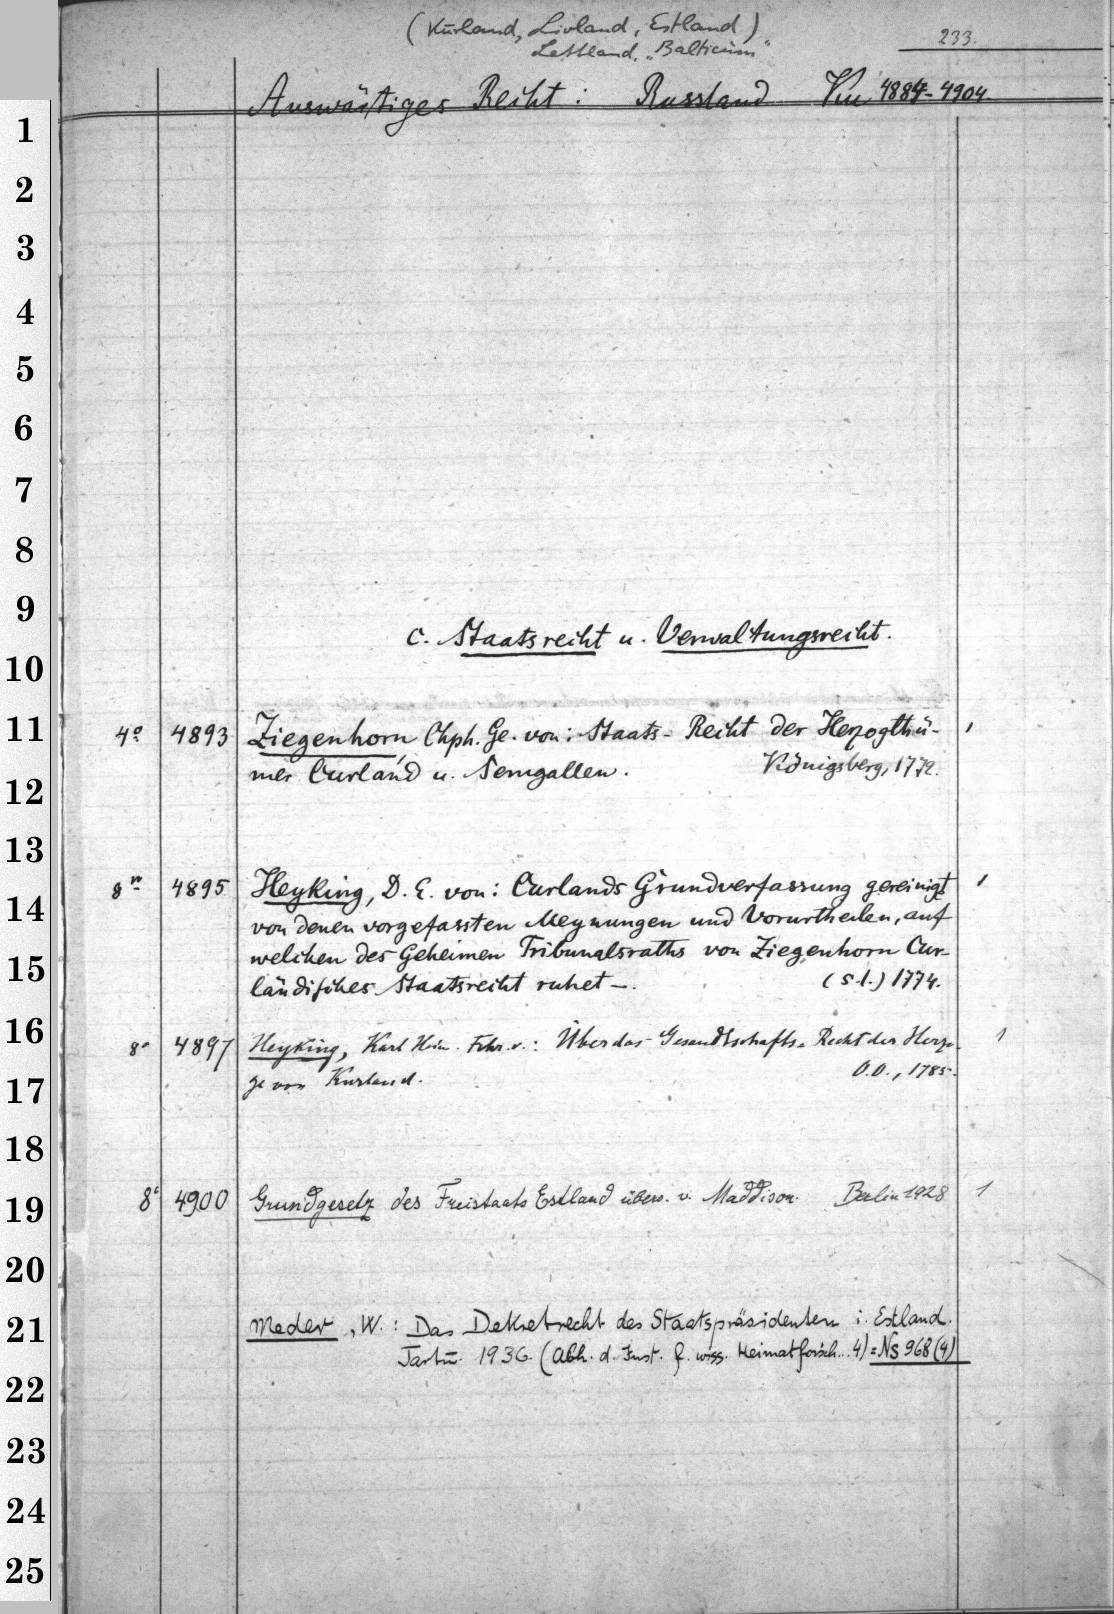 (Kurland, Livland, Estland)
Lettland, „Balticum“
233.
Auswärtiges Recht: Russland VIII 4884-4904.
1
2
3
4
5
6
7
8
9
c. Staatsrecht u. Verwaltungsrecht.
10
11 4° 4893 Ziegenhorn, Chph. Ge. von: Staats-Recht der Herzogthü- 1
mer Curland u. Semgallen. Königsberg, 1772.
12
13
8° 4895 Heyking, D. E. von: Curlands Grundverfassung gereinigt 1
14
von denen vorgefassten Meynungen und Vorurtheilen, auf
welchen des Geheimen Tribunalsraths von Ziegenhorn Cur-
15
ländisches Staatsrecht ruhet –. (s.l.) 1774.
16
8° 4897 Heyking, Karl Hein. Frhr. v.: Über das Gesandtschafts-Recht der Herzo- 1
ge von Kurland. O.O., 1785.
17
18
19 8° 4900 Grundgesetz des Freistaats Estland übers. v. Maddison. Berlin 1928 1
20
21 Meder, W.: Das Dekretrecht des Staatspräsidenten i. Estland.
Tartu. 1936. (Abh. d. Inst. f. wiss. Heimatforsch.. 4) = Ns 968 (4)
22
23
24
25